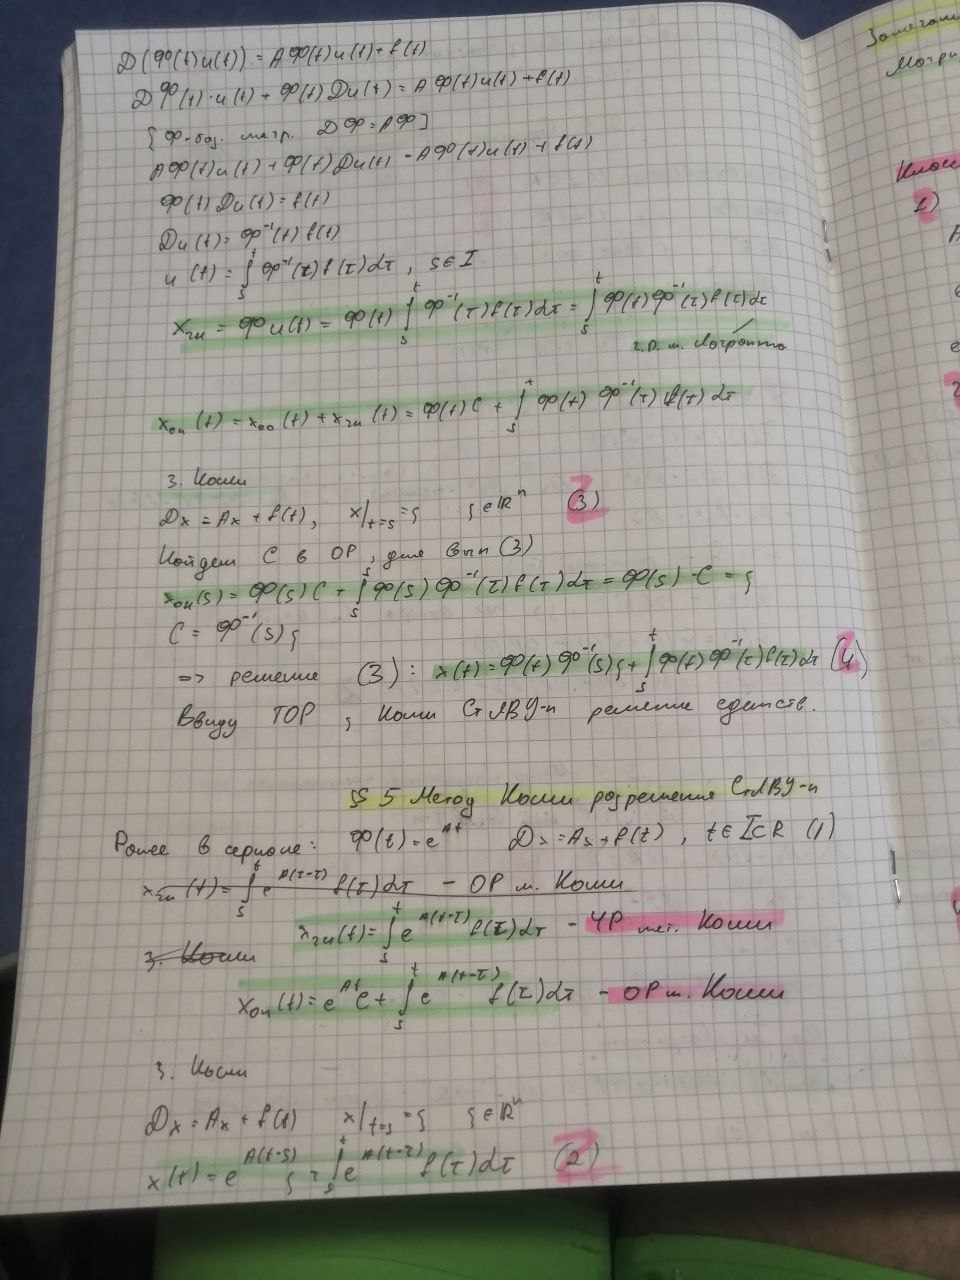 D(Φ(t)u(t)) = AΦ(t)u(t) + f(t)
DΦ(t)·u(t) + Φ(t)Du(t) = AΦ(t)u(t) + f(t)
[Φ-баз. матр. DΦ = AΦ]
AΦ(t)u(t) + Φ(t)Du(t) = AΦ(t)u(t) + f(t)
Φ(t)Du(t) = f(t)
Du(t) = Φ⁻¹(t) f(t)
u(t) = ∫ₛᵗ Φ⁻¹(τ) f(τ)dτ, s∈I
xчн = Φu(t) = Φ(t) ∫ₛᵗ Φ⁻¹(τ) f(τ)dτ = ∫ₛᵗ Φ(t)Φ⁻¹(τ) f(τ)dτ
Ч.Р. м. Лагранжа
xон(t) = xоо(t) + xчн(t) = Φ(t)C + ∫ₛᵗ Φ(t) Φ⁻¹(τ) f(τ) dτ
З. Коши
Dx = Ax + f(t), x|t=s = ξ ξ∈ℝⁿ (3)
Найдем C в ОР, для вып (3)
xон(s) = Φ(s)C + ∫ₛˢ Φ(s) Φ⁻¹(τ) f(τ)dτ = Φ(s)·C = ξ
C = Φ⁻¹(s)ξ
=> решение (3): x(t) = Φ(t)Φ⁻¹(s)ξ + ∫ₛᵗ Φ(t)Φ⁻¹(τ)f(τ)dτ (4)
Ввиду ТОР, з Коши СтЛВУ-п решение единств.
§ 5 Метод Коши разрешения СтЛВУ-п
Ранее в Φ(t) = e^{At} Dx = Ax + f(t), t∈I⊂R (1)
xчн(t) = ∫ₛᵗ e^{A(t-τ)} f(τ)dτ - ОР м. Коши
xчн(t) = ∫ₛᵗ e^{A(t-τ)} f(τ)dτ - ЧР мет. Коши
З. Коши
xон(t) = e^{At}C + ∫ₛᵗ e^{A(t-τ)} f(τ)dτ - ОР м. Коши
З. Коши
Dx = Ax + f(t) x|t=s = ξ ξ∈ℝⁿ
x(t) = e^{A(t-s)} ξ + ∫ₛᵗ e^{A(t-τ)} f(τ)dτ (2)